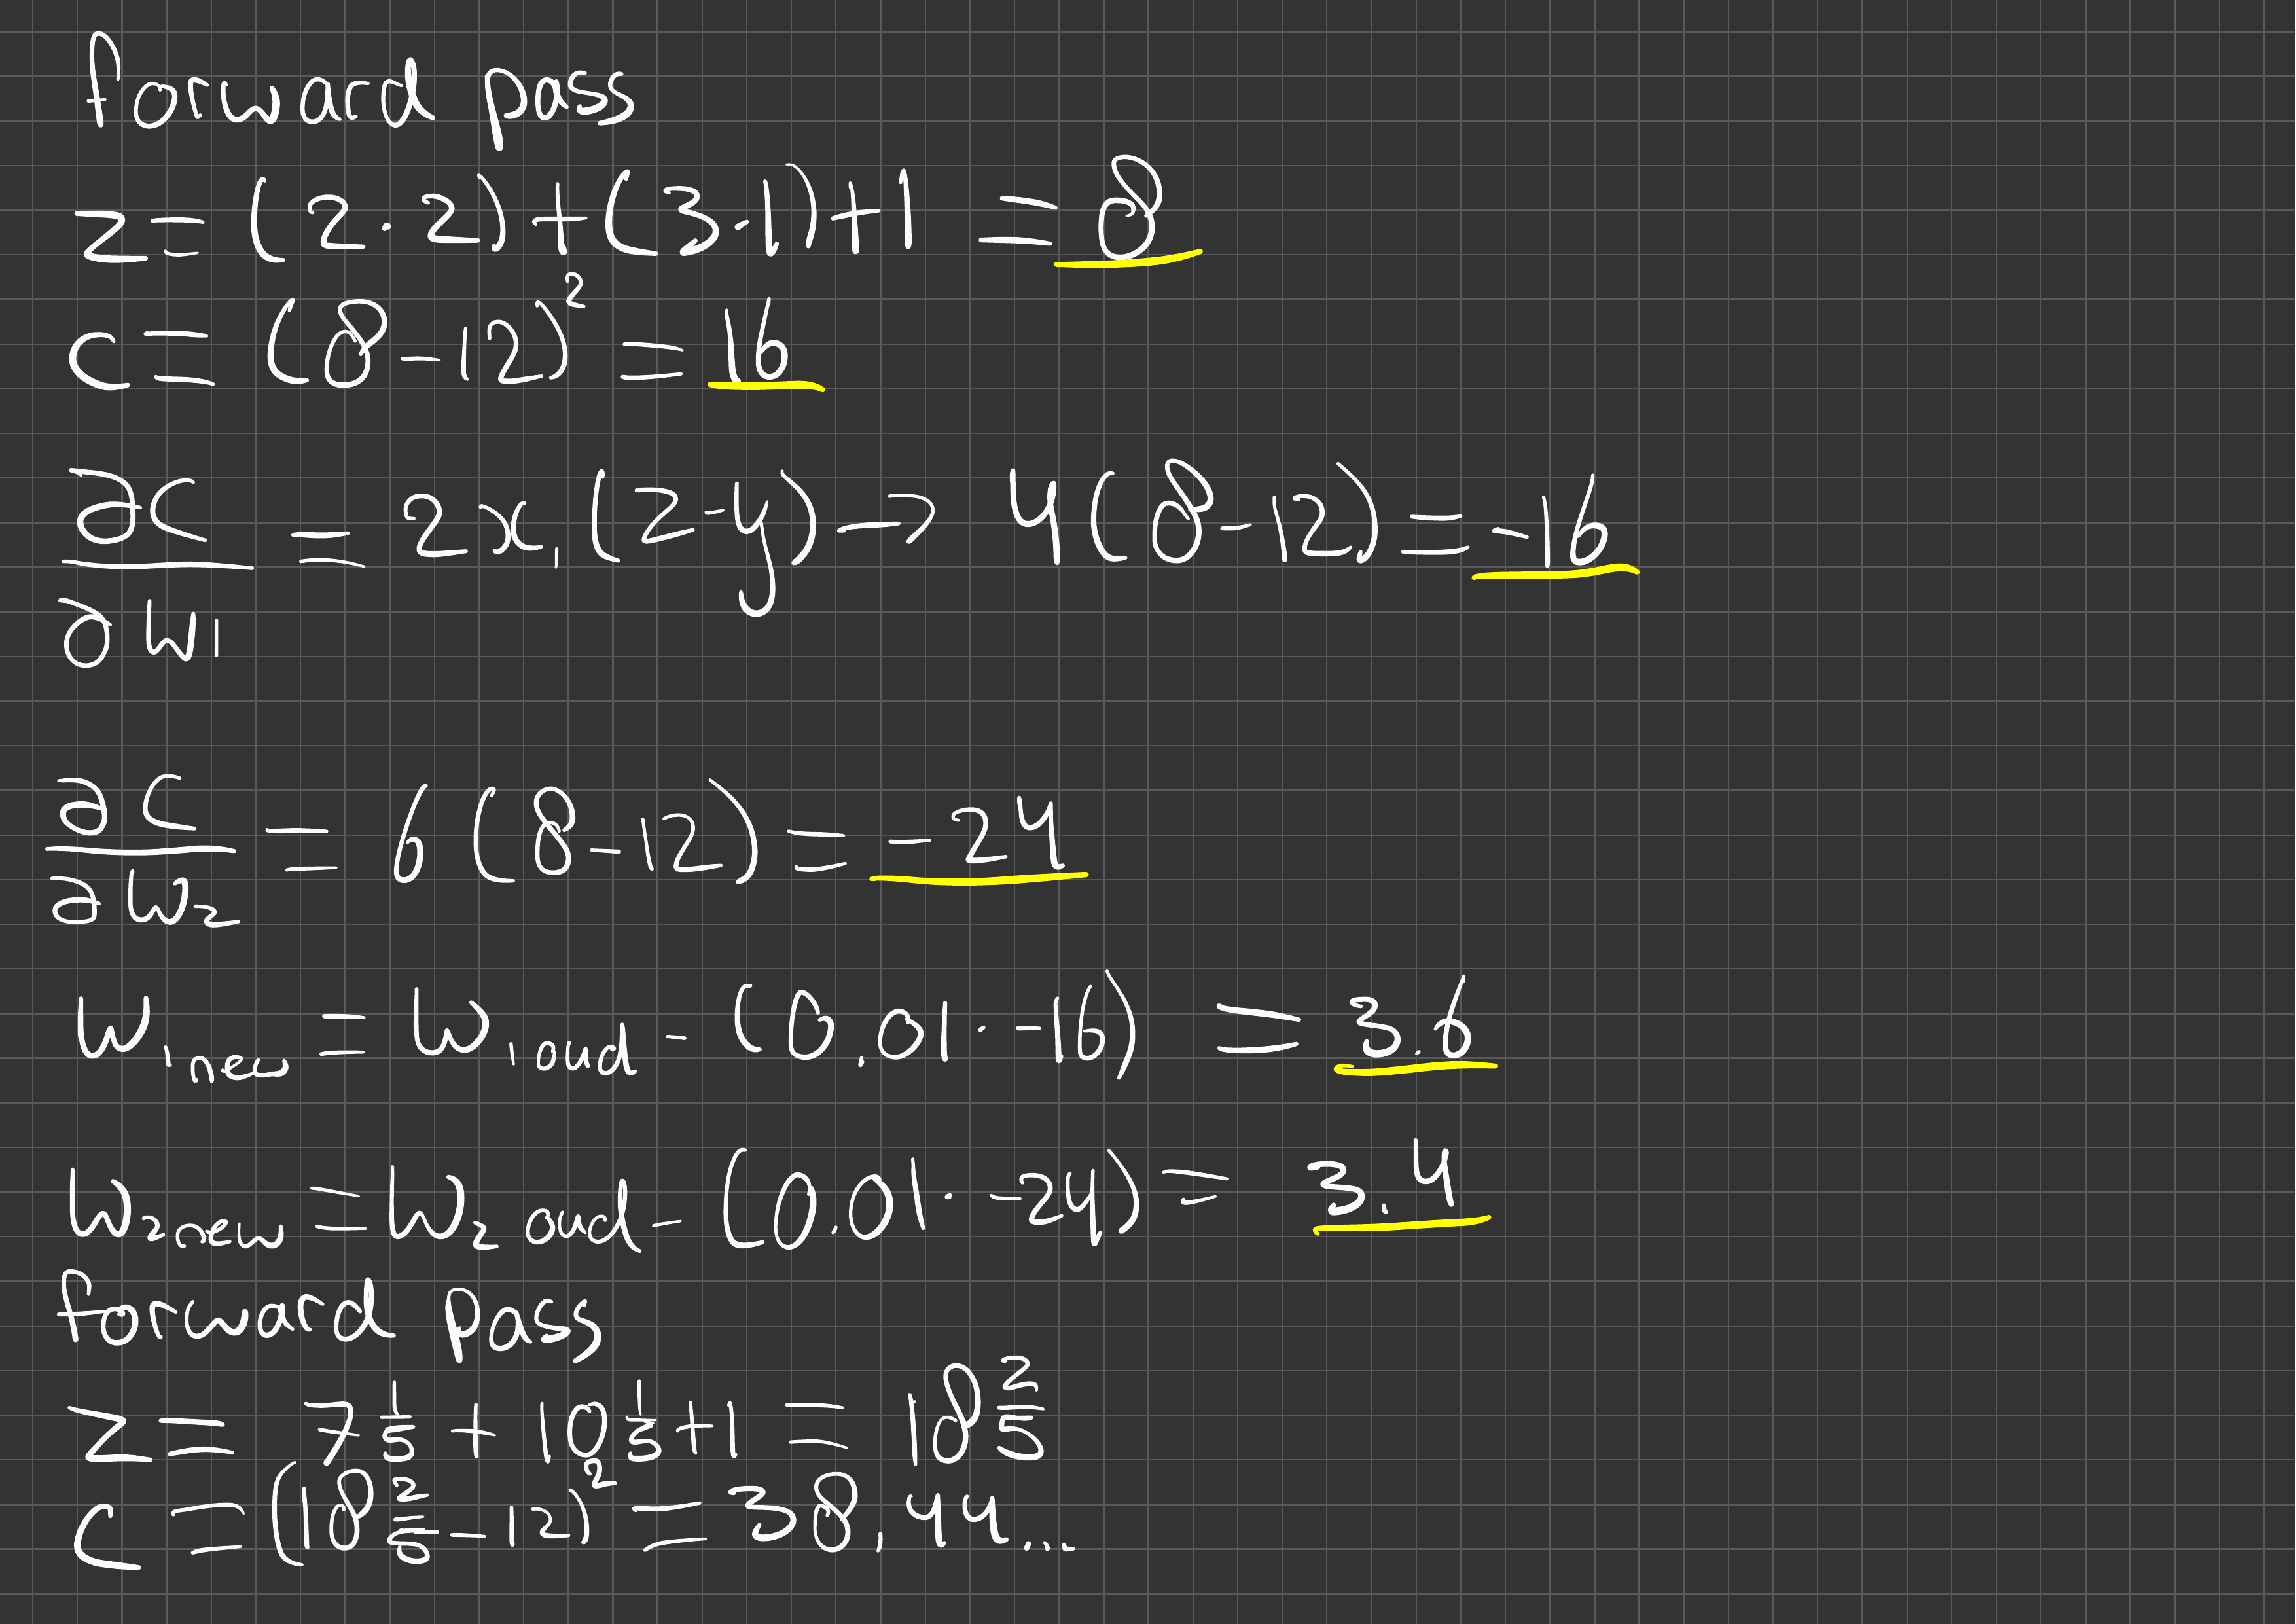 forward pass
z = (2·2) + (3·1) + 1 = 8
c = (8-12)² = 16
∂C/∂w1 = 2x₁(z-y) → 4(8-12) = -16
∂C/∂w₂ = 6(8-12) = -24
w₁new = w₁oud - (0.01·-16) = 3.6
w₂new = w₂oud - (0.01·-24) = 3.4
forward pass
z = 7 1/5 + 10 1/5 + 1 = 18 2/5
c = (18 2/5 - 12)² = 38,44...